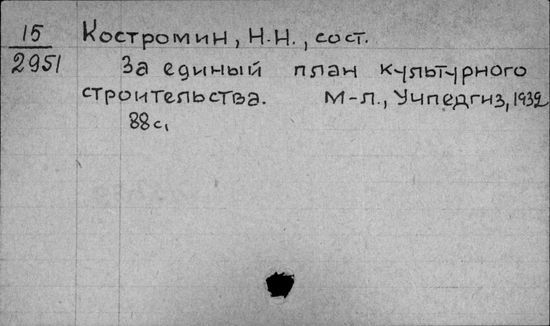 15 Костромин, Н.Н., сост.
2951 За единый план культурного
строительства. М-Л., Учпедгиз, 1932
88 с,